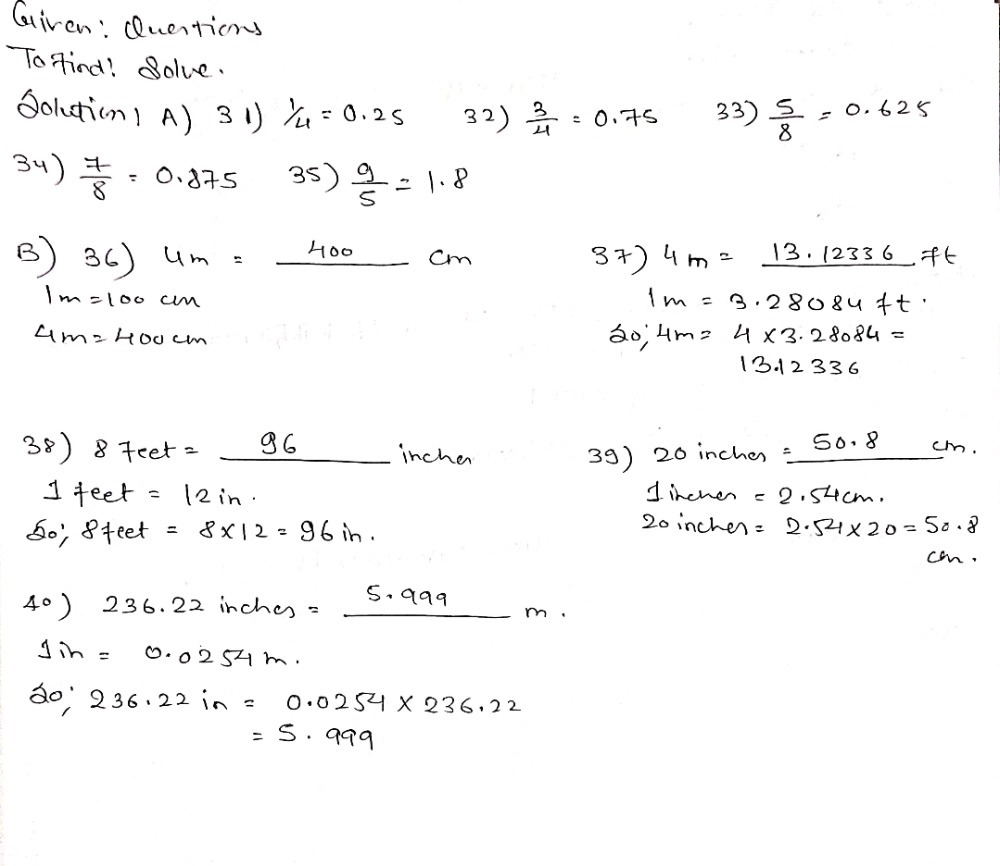 Given: Questions
To Find: Solve.
Solution: A) 31) 1/4 = 0.25 32) 3/4 = 0.75 33) 5/8 = 0.625
34) 7/8 = 0.875 35) 9/5 = 1.8
B) 36) 4m = 400 cm
1m = 100 cm
4m = 400 cm
37) 4m = 13.12336 ft
1m = 3.28084 ft.
So; 4m = 4 x 3.28084 =
13.12336
38) 8 feet = 96 inches
1 feet = 12 in.
So; 8 feet = 8 x 12 = 96 in.
39) 20 inches = 50.8 cm.
1 inches = 2.54 cm.
20 inches = 2.54 x 20 = 50.8
cm.
40) 236.22 inches = 5.999 m.
1 in = 0.0254 m.
So; 236.22 in = 0.0254 x 236.22
= 5.999